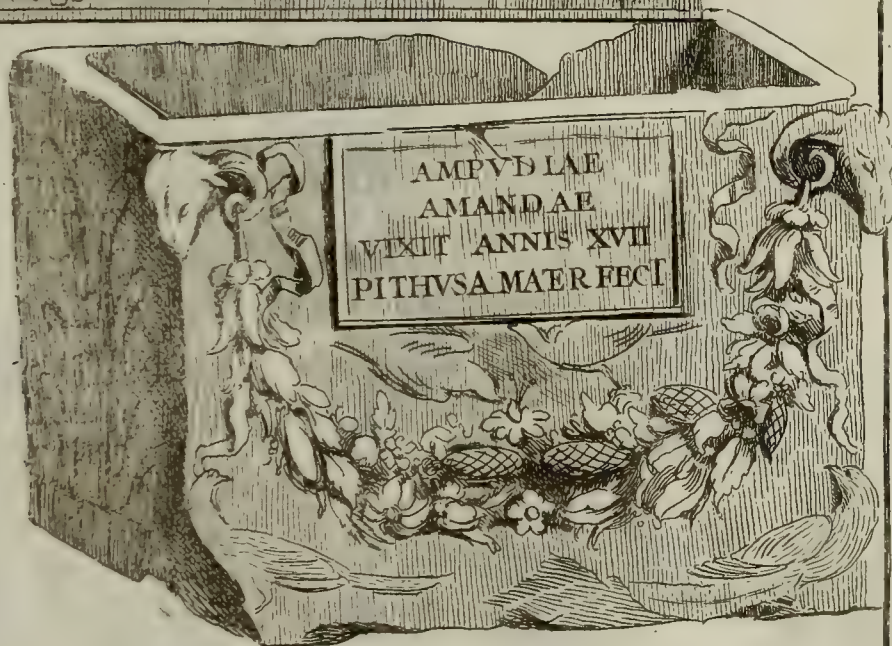 AMPVDIAE
AMANDAE
VIXIT ANNIS XVII
PITHVSA MATER FECIT